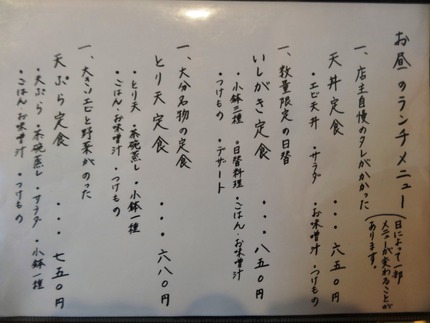 お昼のランチメニュー
(日によって一部
メニューが変わることが
あります。)
一、店主自慢のタレがかかった
天丼定食 ・・・六五〇円
・エビ天丼 ・サラダ ・お味噌汁・つけもの
一、数量限定の日替
いしがき定食 ・・・八五〇円
・小鉢三種 ・日替料理 ・ごはん・お味噌汁
・つけもの ・デザート
一、大分名物の定食
とり天定食 ・・・六八〇円
・とり天 ・茶碗蒸し ・小鉢一種
・ごはん・お味噌汁 ・つけもの
一、大きいエビと野菜がのった
天ぷら定食 ・・・七五〇円
・天ぷら ・茶碗蒸し ・サラダ ・小鉢一種
・ごはん・お味噌汁 ・つけもの